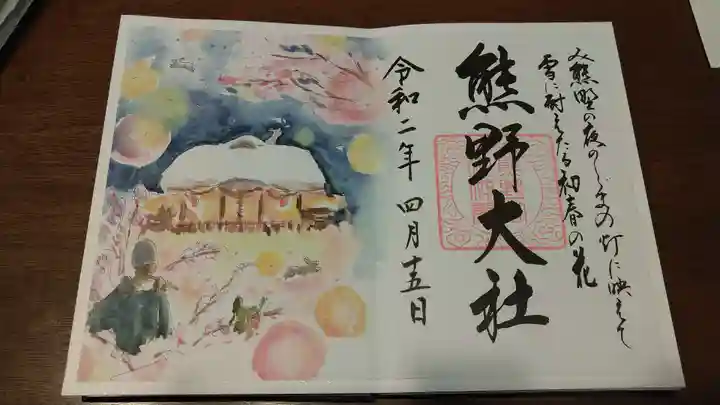 み熊野の夜のしじまの灯に映えて
雪に耐えたる初春の花
熊野大社
令和二年 四月十五日